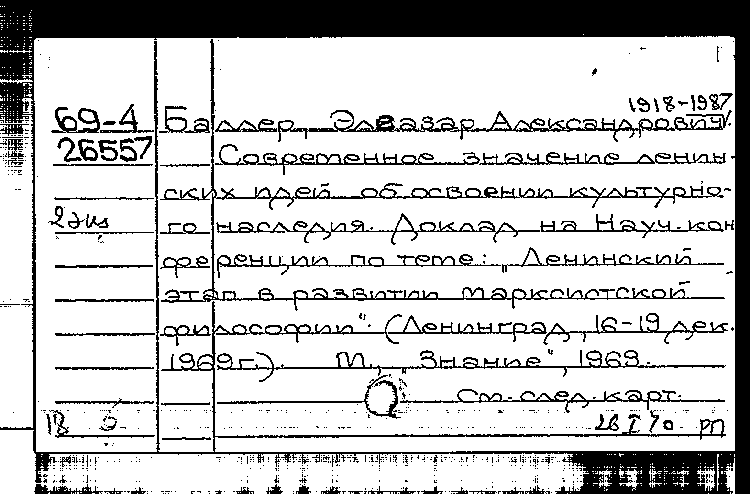 1918-1987
69-4 Баллер, Элеазар Александрович.
26557 Современное значение ленин-
ских идей об освоении культурно-
2 экз го наследия. Доклад на Науч. кон
ференции по теме: "Ленинский
этап в развитии марксистской
философии". (Ленинград, 16-19 дек.
1969 г.). М., "Знание", 1969.
См. след. карт.
28 I 70 РП